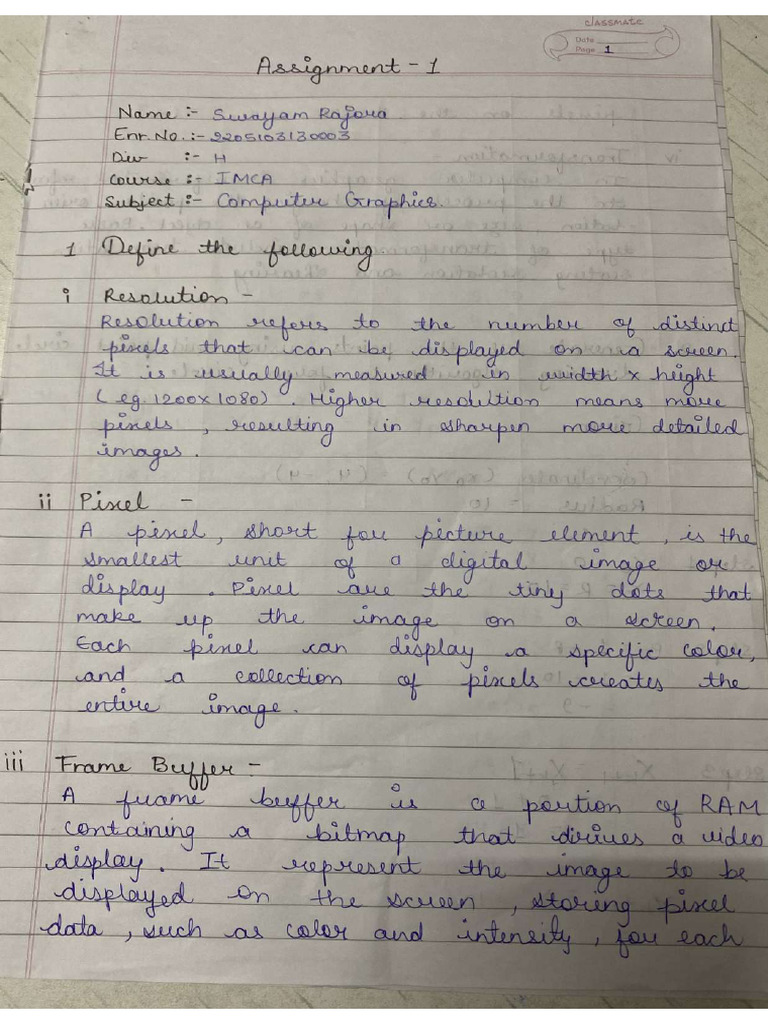 classmate
Date
Page 1
Assignment - 1
Name :- Swayam Rajora
Enr. No. :- 2205103130003
Div :- H
Course :- IMCA
Subject :- Computer Graphics.
1 Define the following
i Resolution -
Resolution refers to the number of distinct
pixels that can be displayed on a screen.
It is usually measured in width x height
( eg. 1200x1080) . Higher resolution means more
pixels , resulting in sharpen more detailed
images .
ii Pixel -
A pixel, short for picture element, is the
smallest unit of a digital image or
display . Pixel are the tiny dots that
make up the image on a screen.
Each pixel can display a specific color,
and a collection of pixels creates the
entire image .
iii Frame Buffer -
A frame buffer is a portion of RAM
containing a bitmap that drives a video
display . It represent the image to be
displayed on the screen , storing pixel
data , such as color and intensity , for each